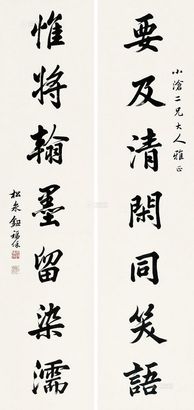 小滄二兄大人雅正
要及清閑同笑語
惟將翰墨留染濡
松泉鈕福保